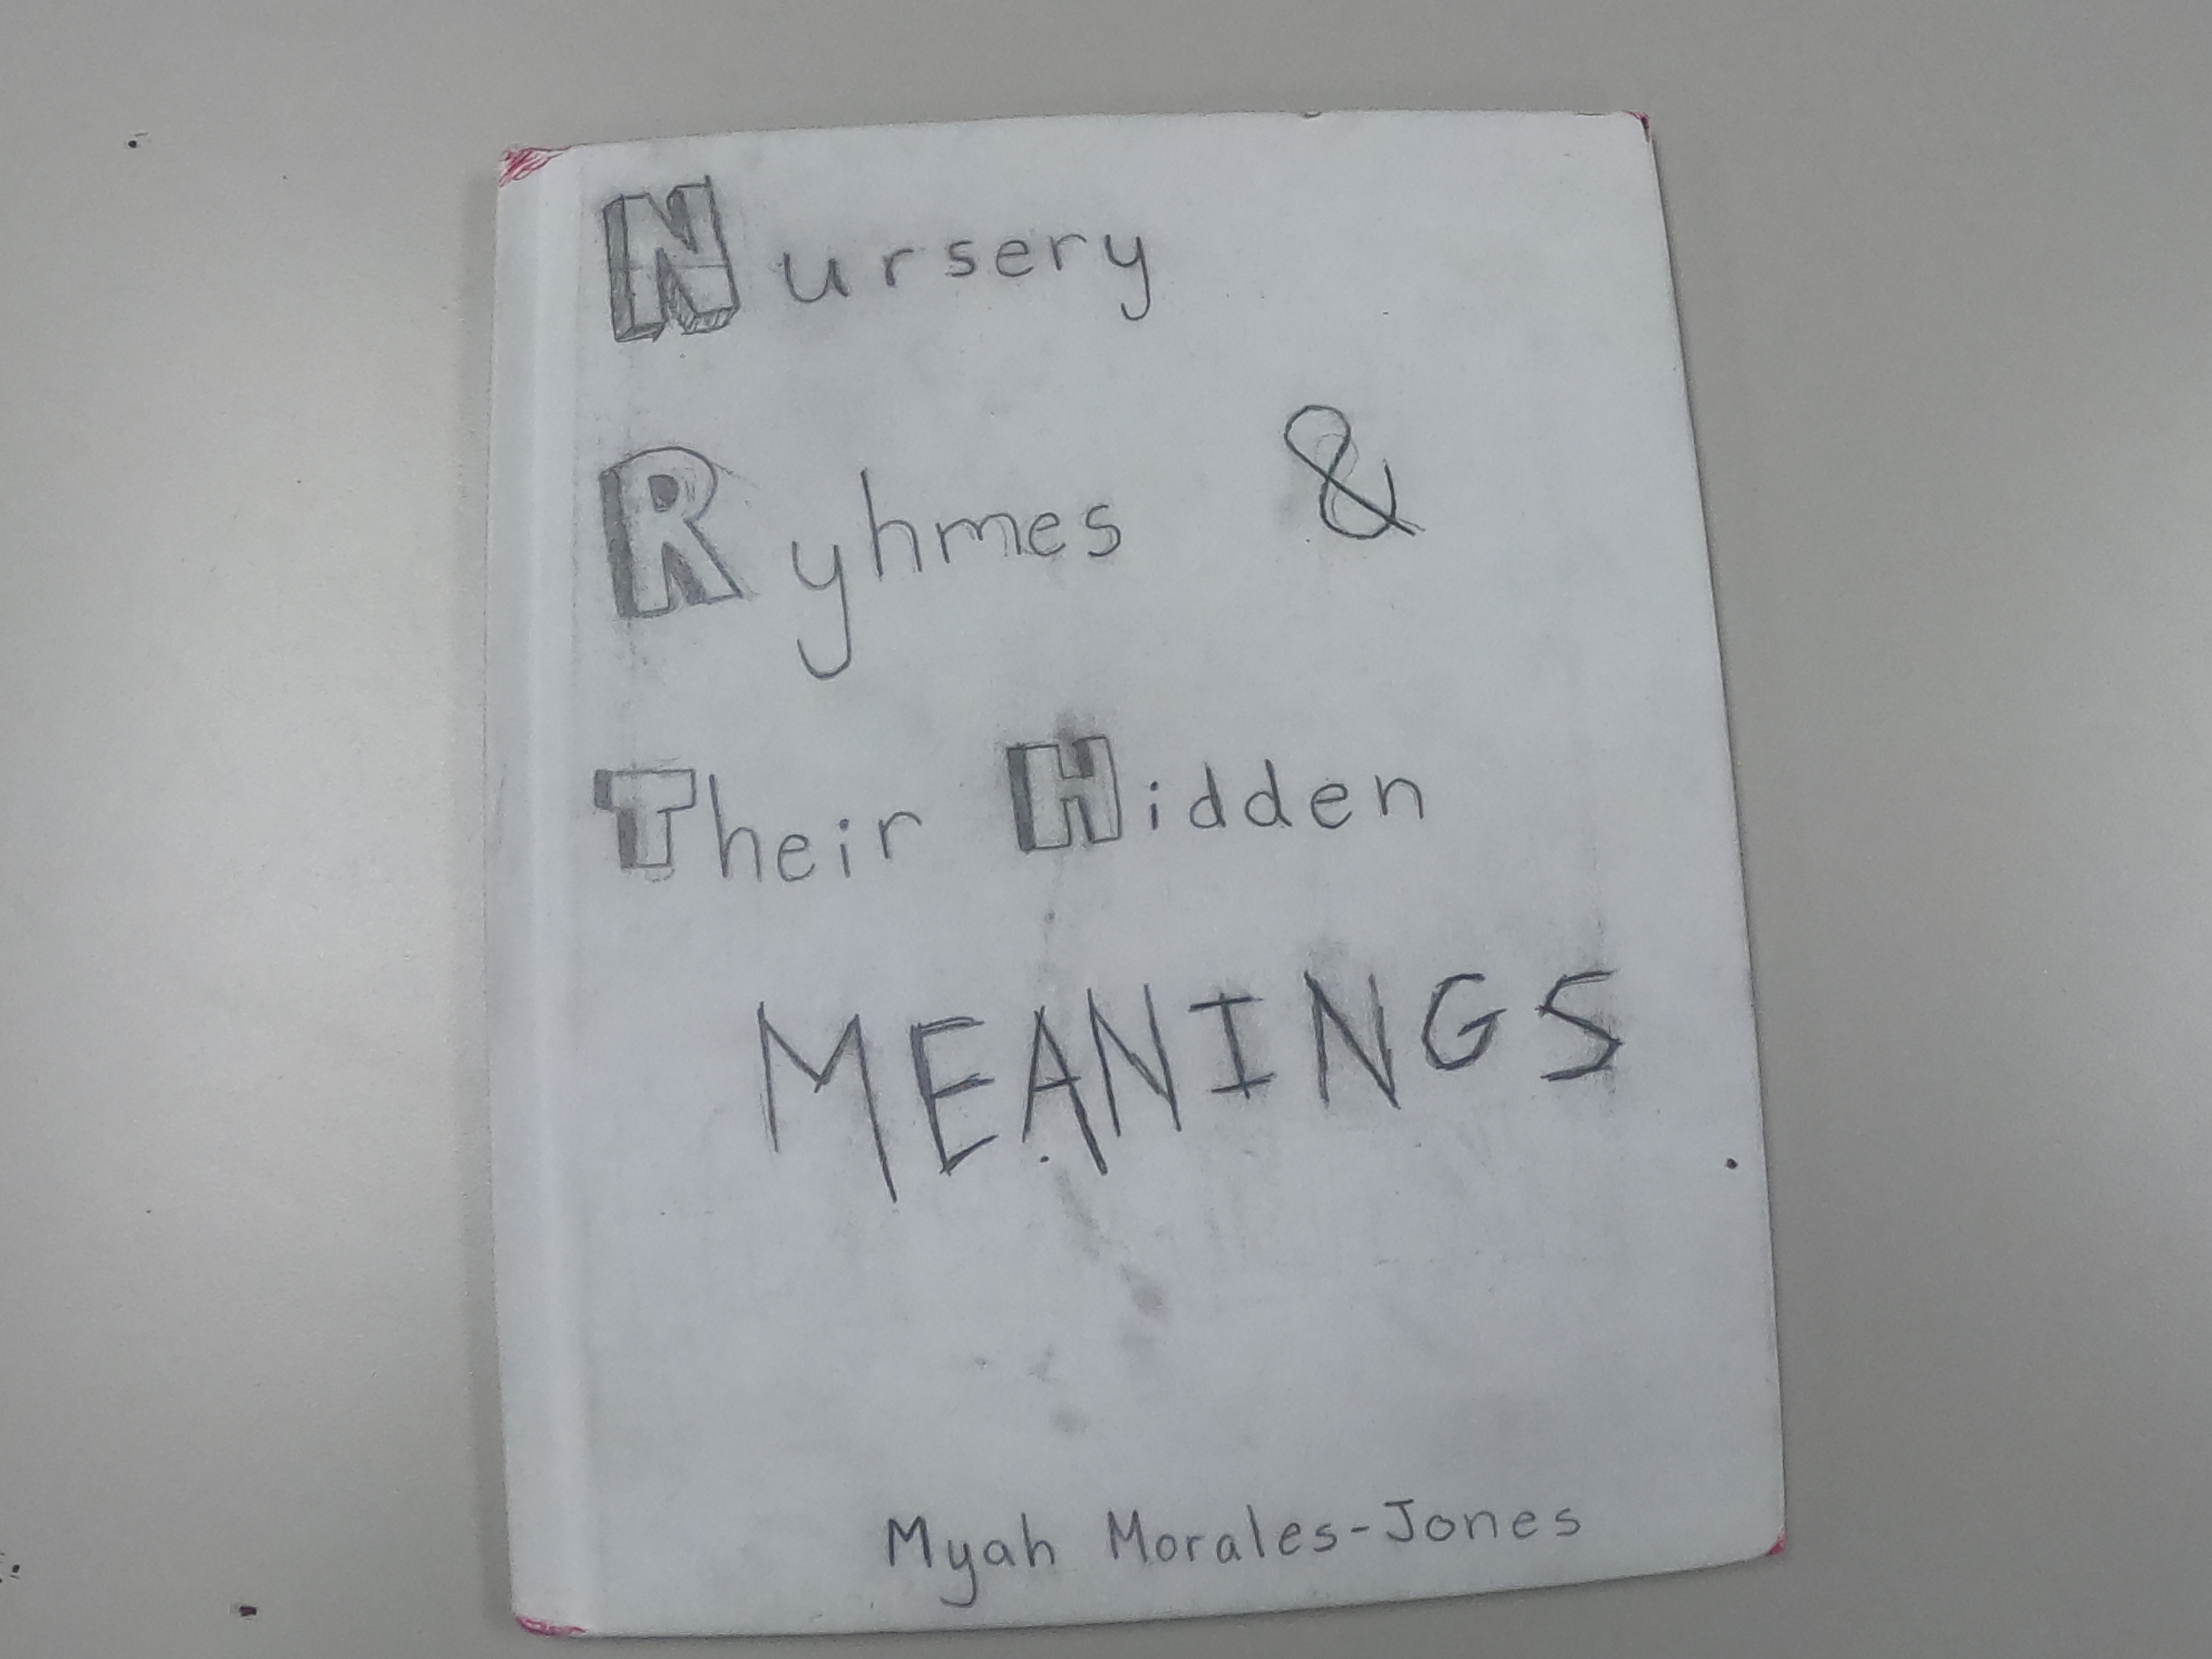 Nursery
Ryhmes &
Their Hidden
MEANINGS
Myah Morales-Jones